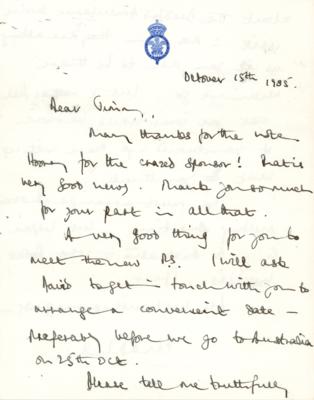 October 15th 1985.
Dear Jimmy,
Many thanks for the note
Hooray for the crazed sponsor! That is
very good news. Thank you so much
for your part in all that.
A very good thing for you to
meet the new P.S. I will ask
David to get in touch with you to
arrange a convenient date –
preferably before we go to Australia
on 25th Oct.
Please tell me truthfully